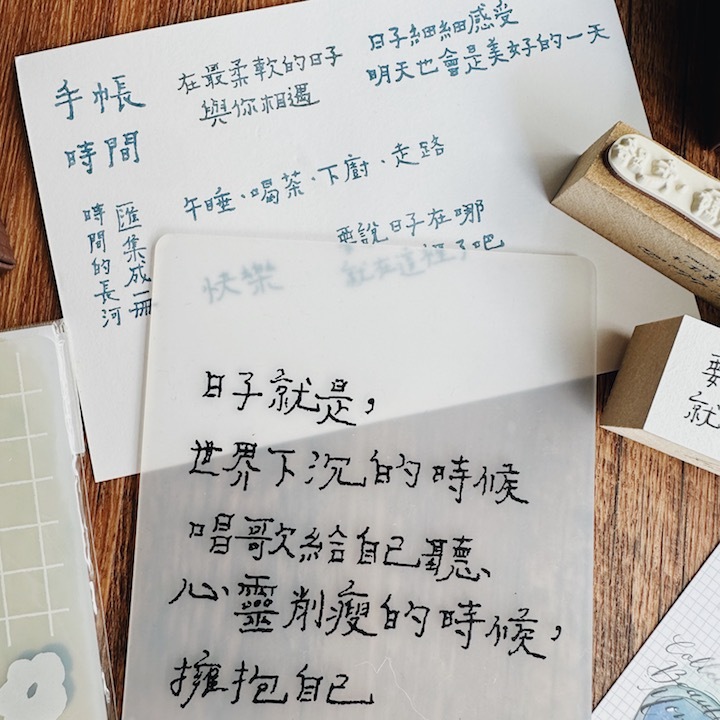 手帳
時間
在最柔軟的日子
與你相遇
日子細細感受
明天也會是美好的一天
午睡、喝茶、下廚、走路
匯集成一冊
時間的長河
要說日子在哪
就在這裡了吧
快樂
日子就是，
世界下沉的時候
唱歌給自己聽、
心靈削瘦的時候，
擁抱自己
要
就